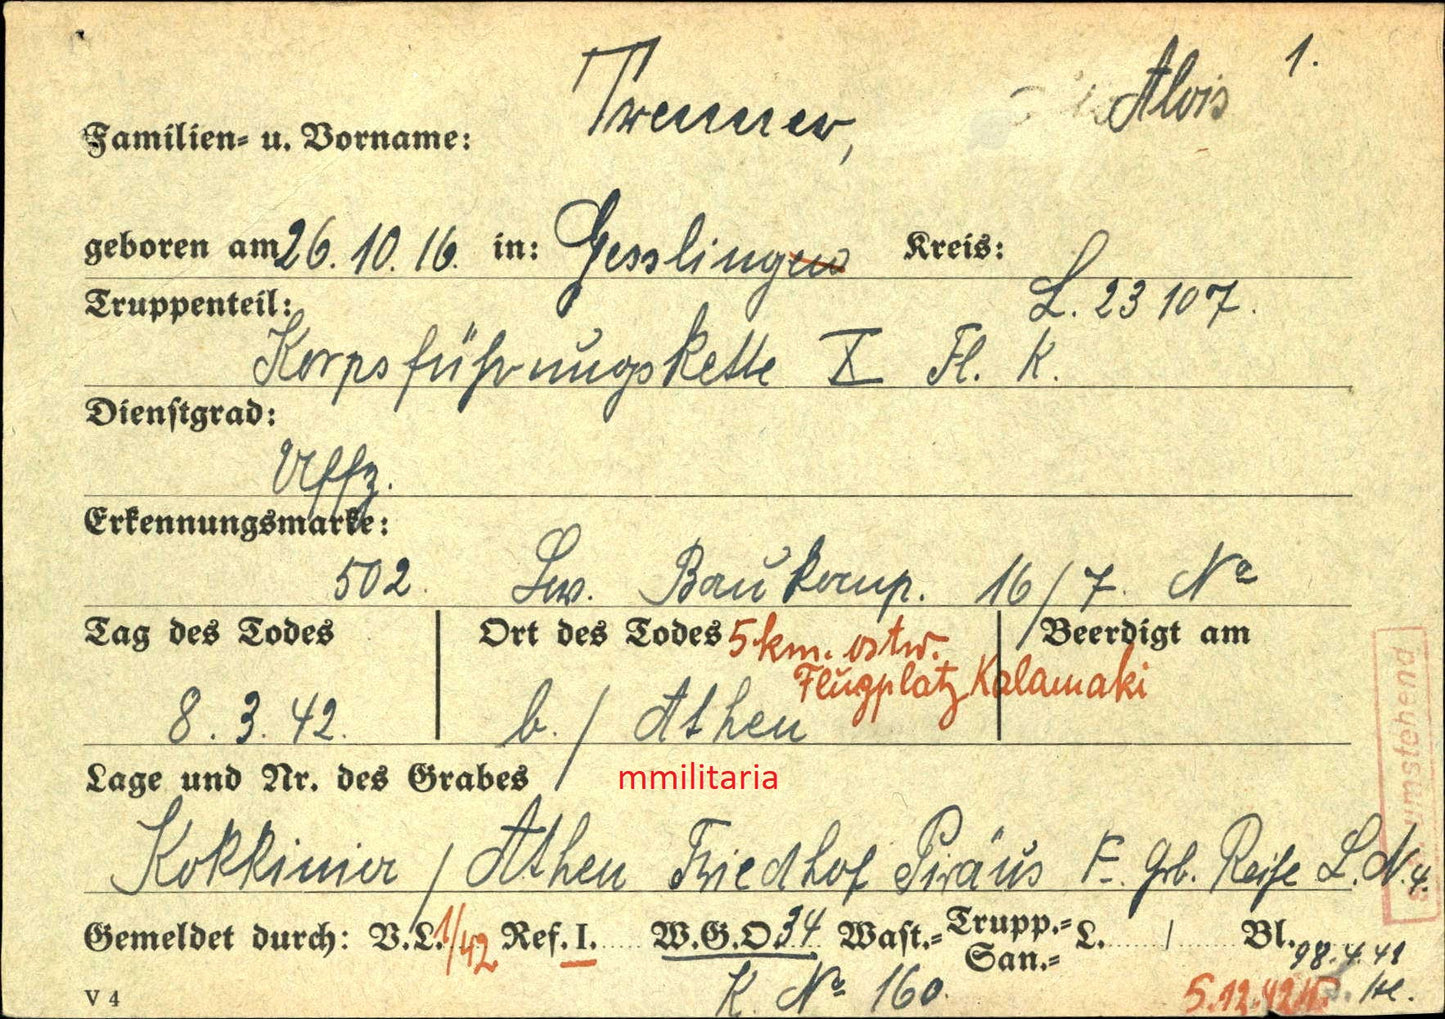 1.
Familien- u. Vorname: Trenner, Alois
geboren am 26.10.16. in: Gesslingen Kreis:
Truppenteil: L. 23 107.
Korpsführungskette X Fl. K.
Dienstgrad:
Uffz.
Erkennungsmarke:
502. Lw. Baukomp. 16/7. No
Tag des Todes Ort des Todes 5 km. ostw. Beerdigt am
Flugplatz Kalamaki
8.3.42. b./Athen
Lage und Nr. des Grabes mmilitaria
Kokkinia / Athen Friedhof Piräus F. Grb. Reihe L. N. 4.
umstehend
Gemeldet durch: V.L. 1/42 Ref. I. W.G.O 34 Wast.- Trupp.- San.- L. / Bl.
K. No 160.
5.12.42
V 4